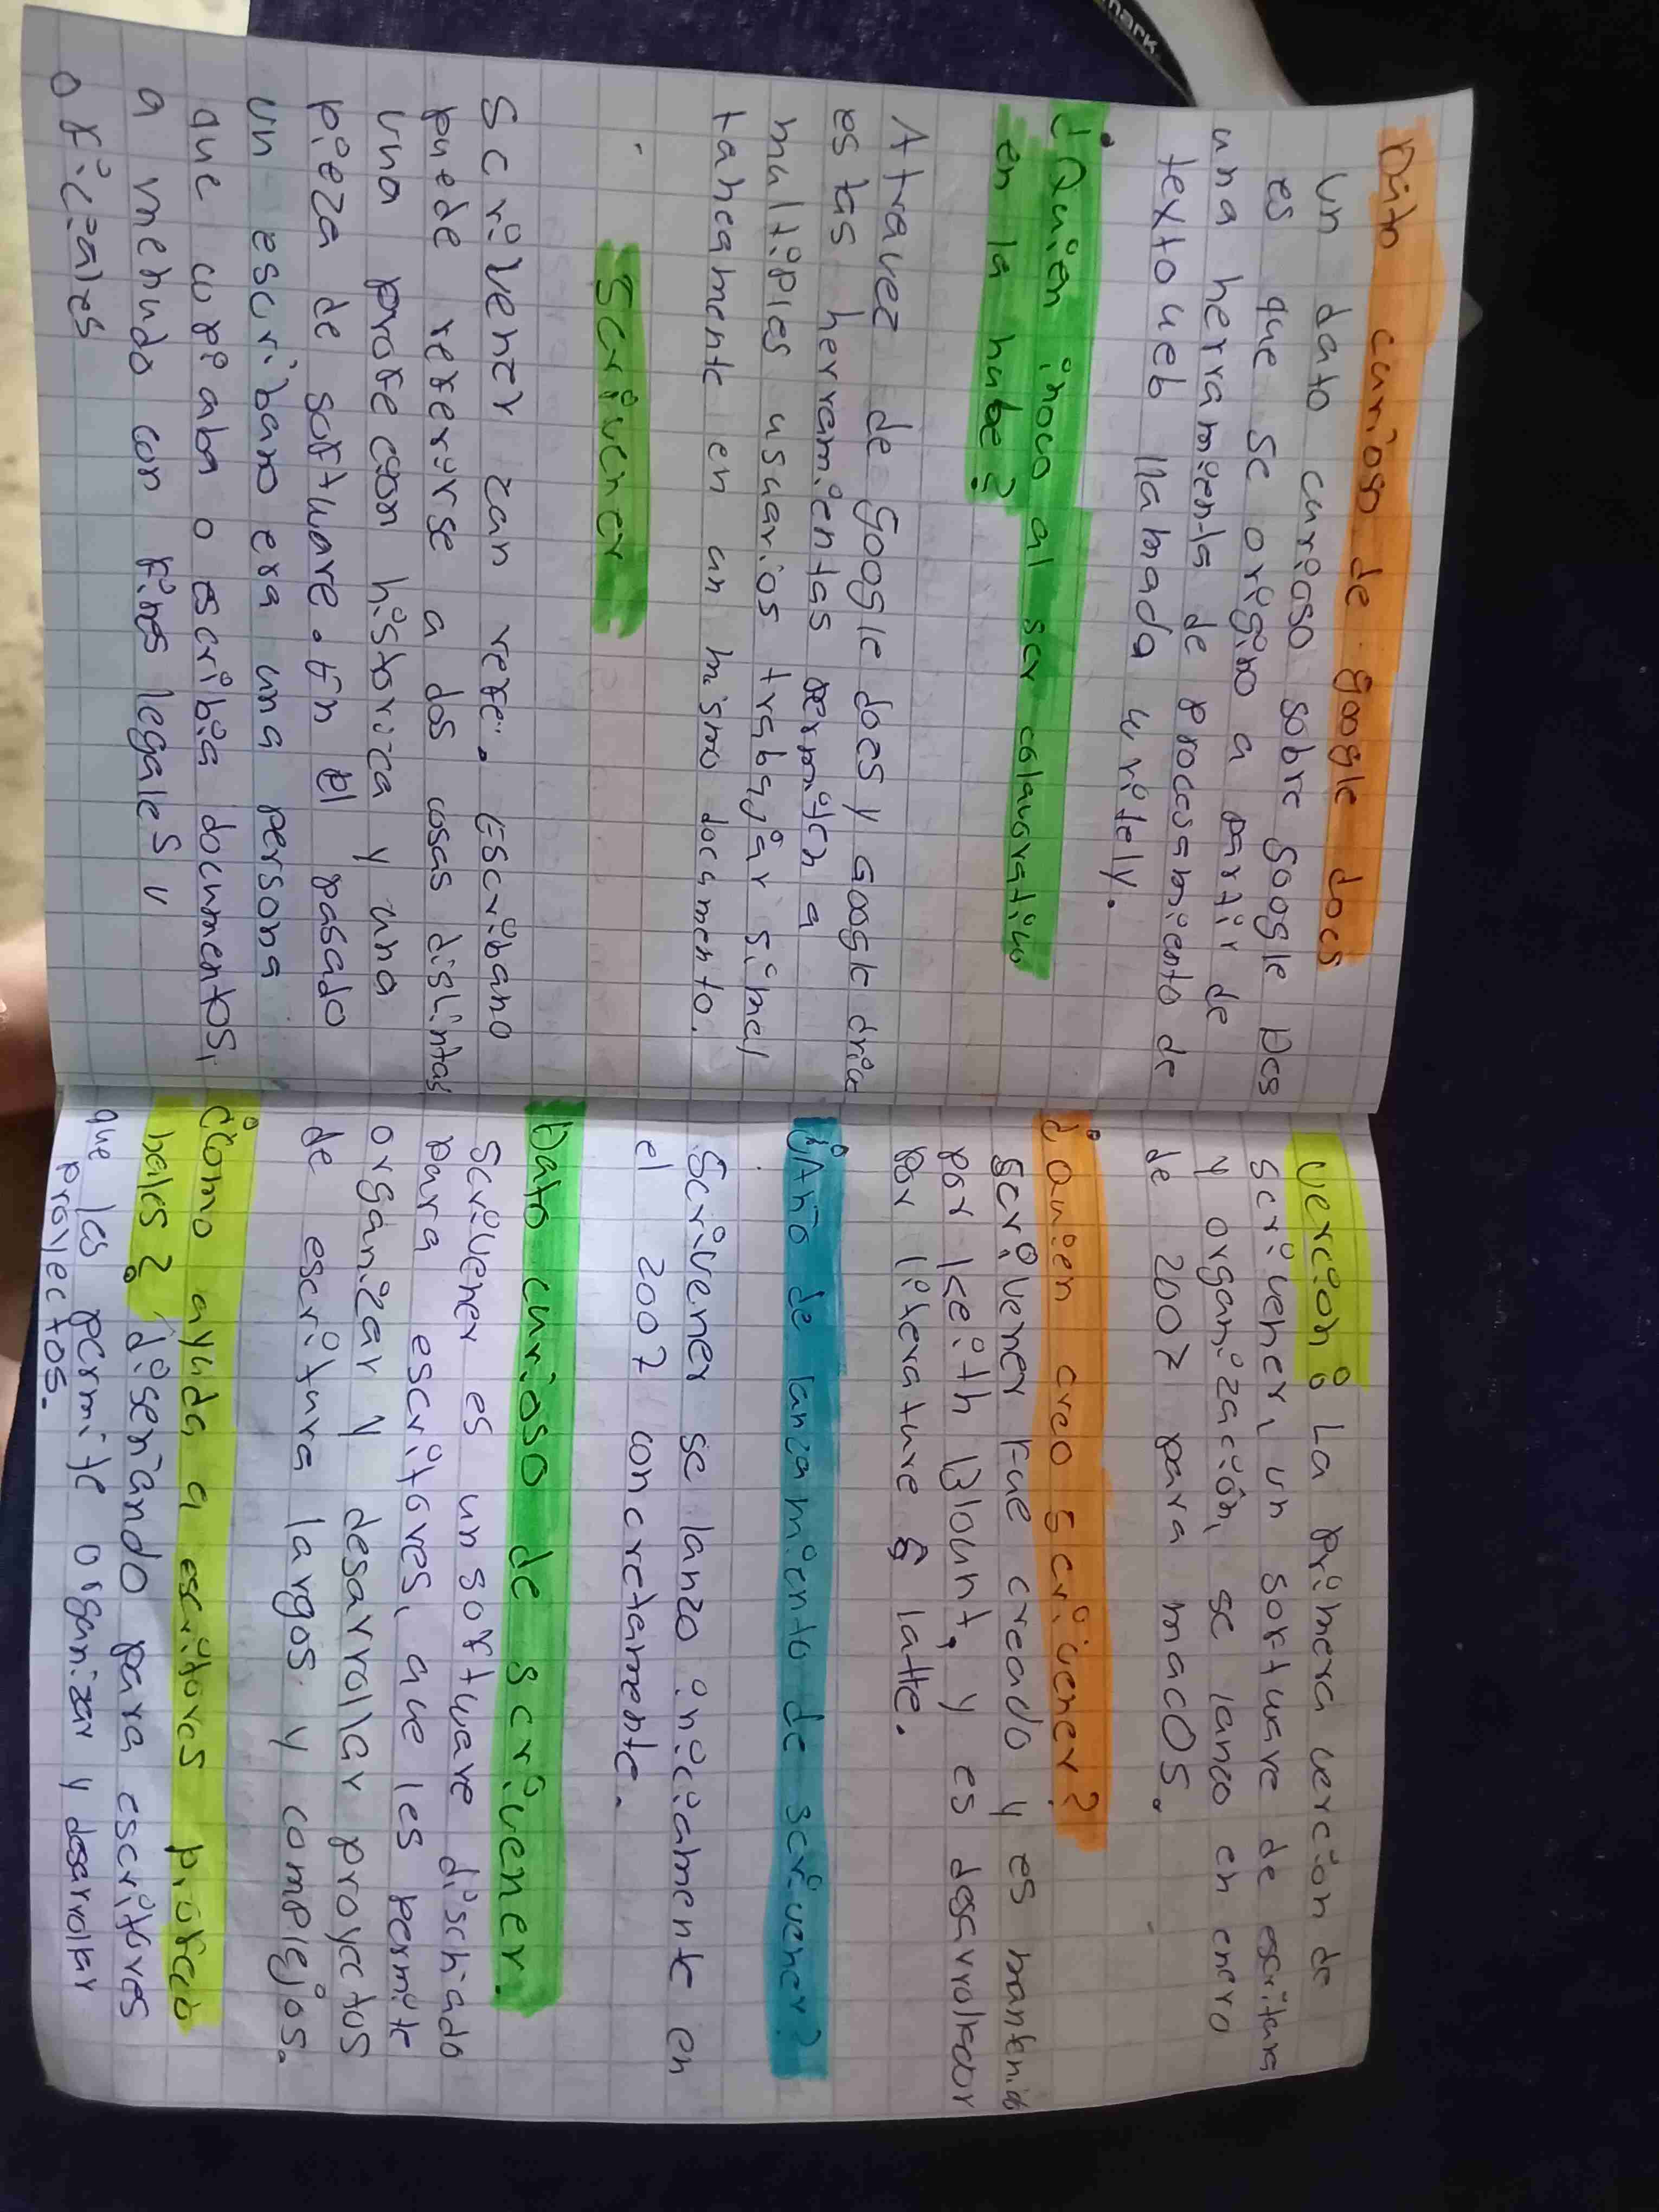 Dato curioso de google docs
un dato curioso sobre google Dcs
es que se origino a partir de
una herramienta de procesamiento de
texto web llamada writely.
¿Quien inovo al ser colavorativo
en la nube?
A travez de google docs y google drive
estas herramientas permiten a
multiples usuarios trabajar simul
taneamente en un mismo documento.
Scrivener
Scrivener zan refe. Escribano
puede referirse a dos cosas distintas
una profecion historica y una
pieza de software. En el pasado
un escribano era una persona
que copiaba o escribia documentos,
a menudo con fines legales u
oficiales
Vercion: La primera vercion de
scrivener, un software de escritura
y organización, se lanzo en enero
de 2007 para macOS.
¿Quien creo scrivener?
Scrivener fue creado y es mantenido
por Keith Blount, y es desarrollador
por literature & latte.
¿Año de lanzamiento de scrivener?
Scrivener se lanzo iniciamente en
el 2007 concretamente.
Dato curioso de scrivener.
Scrivener es un software diseñado
para escritores, que les permite
organizar y desarrollar proyectos
de escritura largos y complejos.
¿Como ayuda a escritores profecio
nales? diseñando para escritores
que les permite organizar y desarrollar
proyectos.